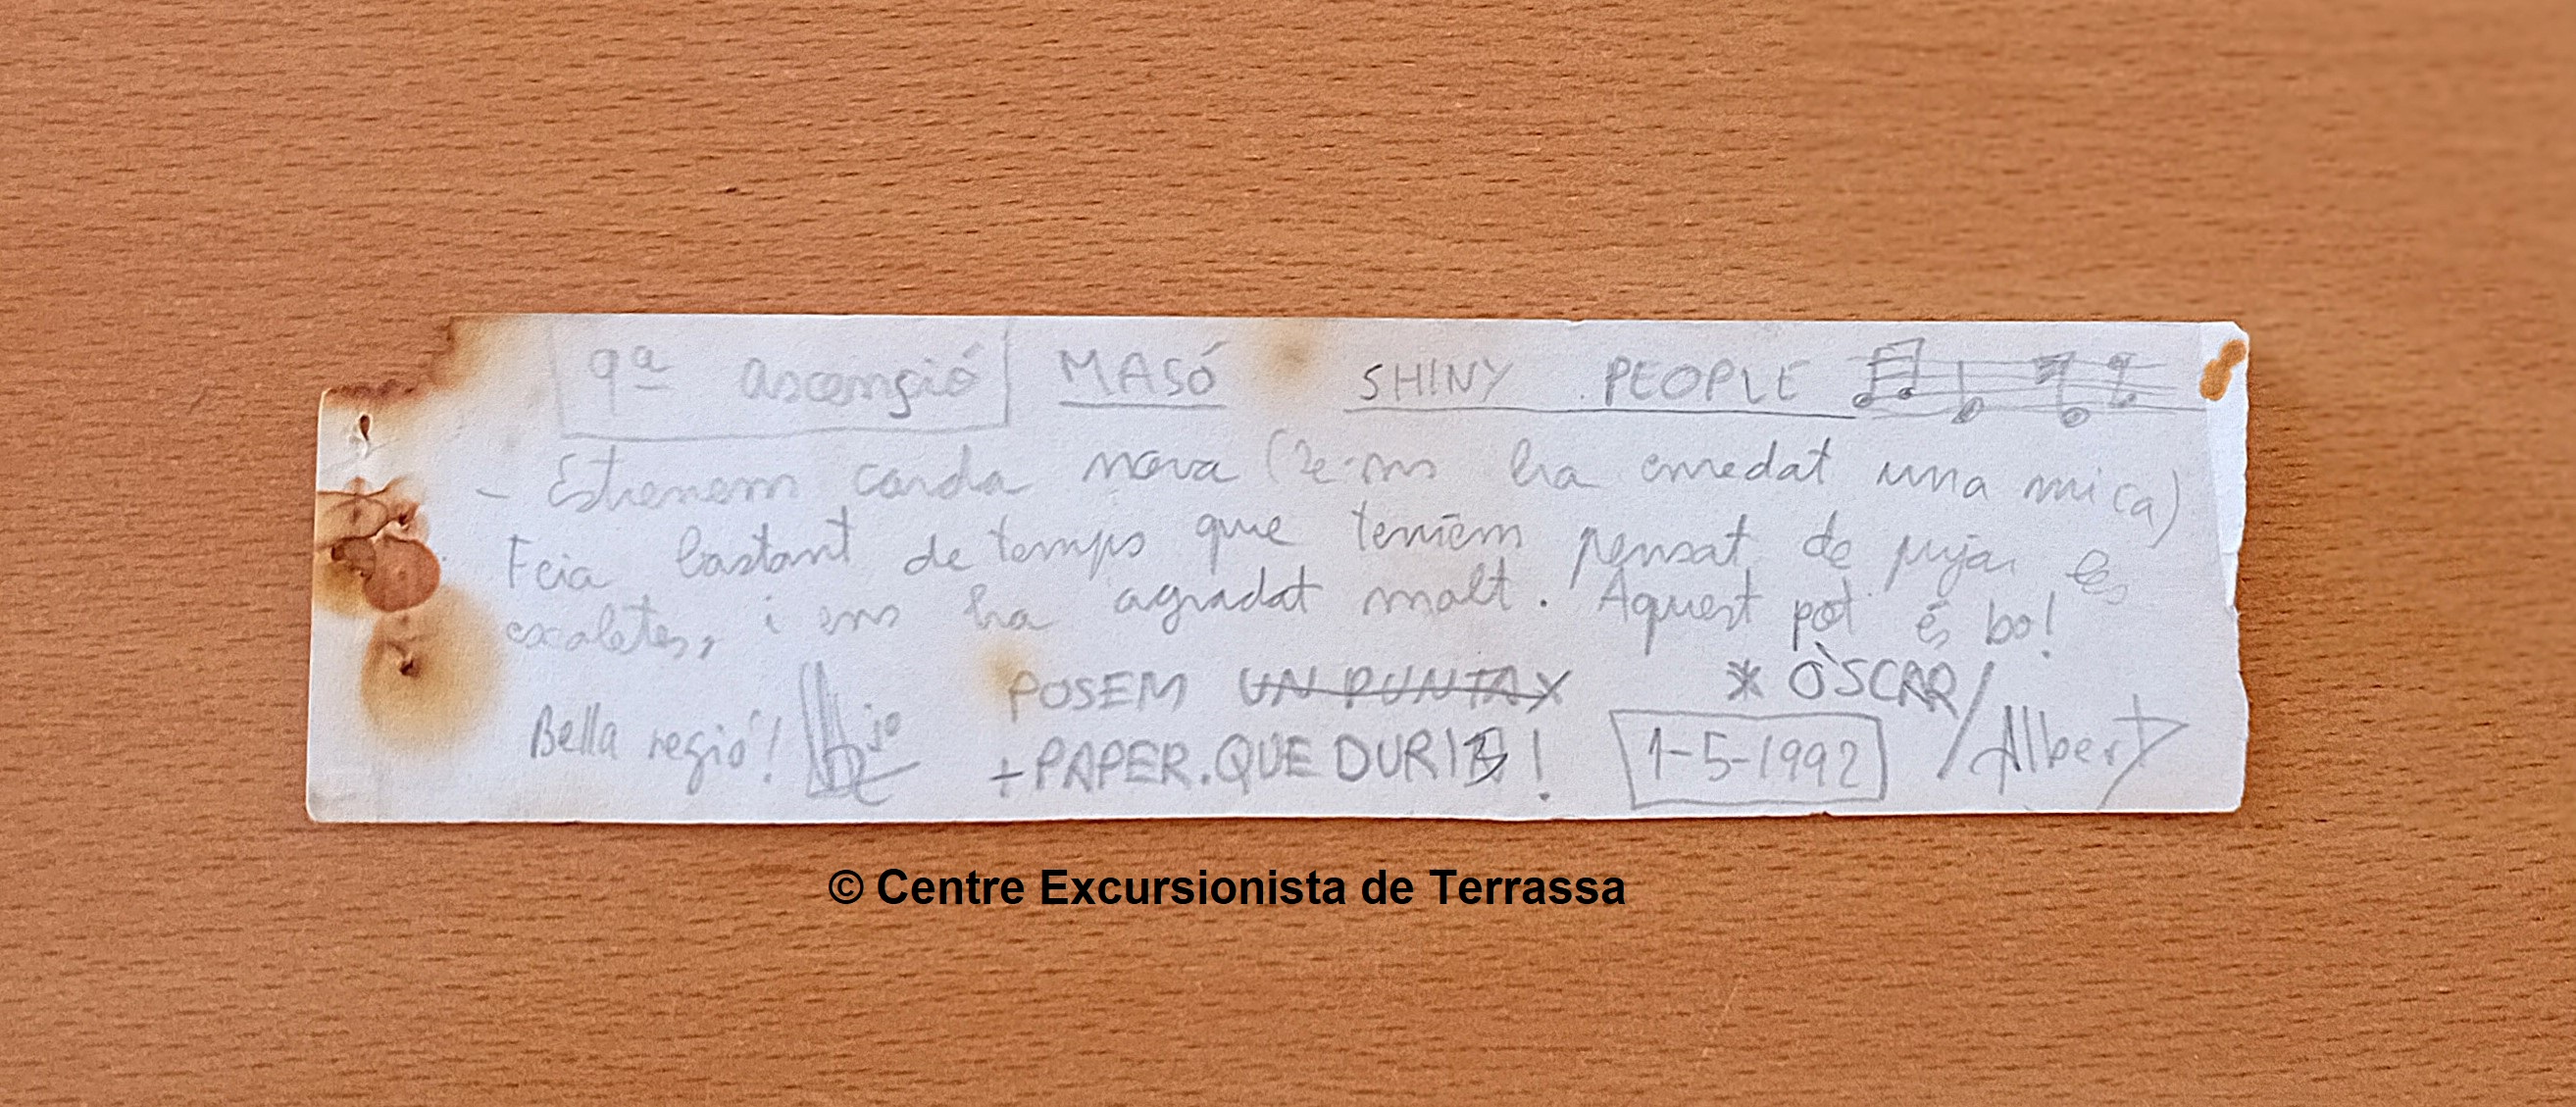 9ª ascensió MASÓ SHINY PEOPLE
- Estrenem corda nova (se'ns ha enredat una mica)
Feia bastant de temps que teniem pensat de pujar les
escaletes, i ens ha agradat molt. Aquest pot és bo!
POSEM UN PUNTAX * ÒSCAR/
Bella regió! +PAPER. QUE DURI! 1-5-1992 Albert
© Centre Excursionista de Terrassa